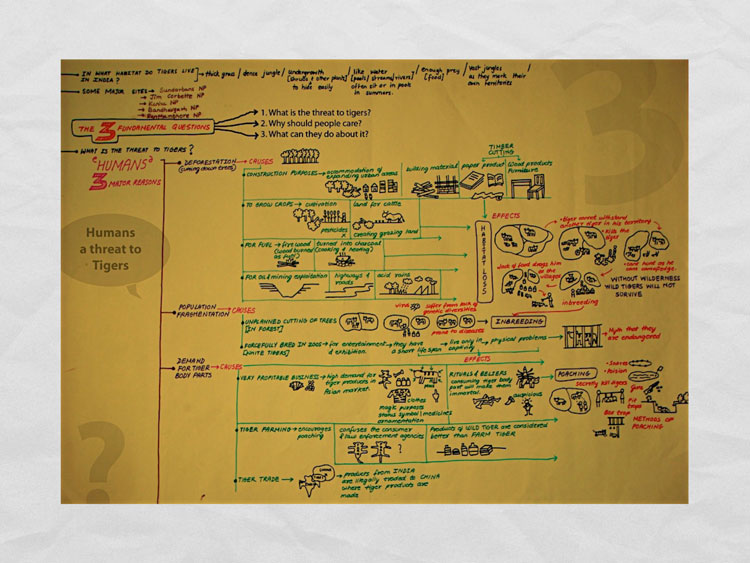 IN WHAT HABITAT DO TIGERS LIVE IN INDIA?
thick grass / dense jungle / undergrowth [shrubs & other plants] to hide easily / like water [pools/streams/rivers] often sit or in pools in summers. / enough prey [food] / vast jungles as they mark their own territories
SOME MAJOR SITES
Sundarbans NP
Jim Corbette NP
Kanha NP
Bandhavgarh NP
Ranthambhore NP
THE 3 FUNDAMENTAL QUESTIONS
1. What is the threat to tigers?
2. Why should people care?
3. What can they do about it?
3
WHAT IS THE THREAT TO TIGERS?
"HUMANS"
3 MAJOR REASONS
Humans
a threat to
Tigers
?
DEFORESTATION
CAUSES
CONSTRUCTION PURPOSES
accommodation of expanding urban areas
building material
TIMBER CUTTING
paper product
Wood products
Furniture
TO GROW CROPS
cultivation
pesticides
land for cattle
creating grazing land
FOR FUEL
firewood
burned into charcoal
(cooking & heating)
FOR OIL & mining exploitation
highways & roads
acid rains
HABITAT LOSS
EFFECTS
tiger cannot withstand another tiger in his territory
kills the tiger
lack of food drags him to the villages
inbreeding
WITHOUT WILDERNESS WILD TIGERS WILL NOT SURVIVE.
POPULATION FRAGMENTATION
CAUSES
UNPLANNED CUTTING OF TREES [IN FOREST]
suffer from lack of genetic diversities
prone to diseases
INBREEDING
FORCEFULLY BRED IN ZOOS [WHITE TIGERS]
for entertainment & exhibition.
they have a short life span
live only in captivity
physical problems
Myth that they are endangered
DEMAND FOR TIGER BODY PARTS
CAUSES
EFFECTS
VERY PROFITABLE BUSINESS
high demand for tiger products in Asian market.
clothes
magic purposes
status symbol
medicines
ornamentation
RITUALS & BELIEFS
consuming tiger body part will make them immortal
auspicious
POACHING
Snares
Poison
secretly kill tigers
Guns
Pit traps
Box trap
METHODS OF POACHING
TIGER FARMING
encourages poaching
confuses the consumer & law enforcement agencies
?
Products of WILD TIGER are considered better than FARM TIGER
TIGER TRADE
products from INDIA are illegally traded to CHINA where tiger products are made